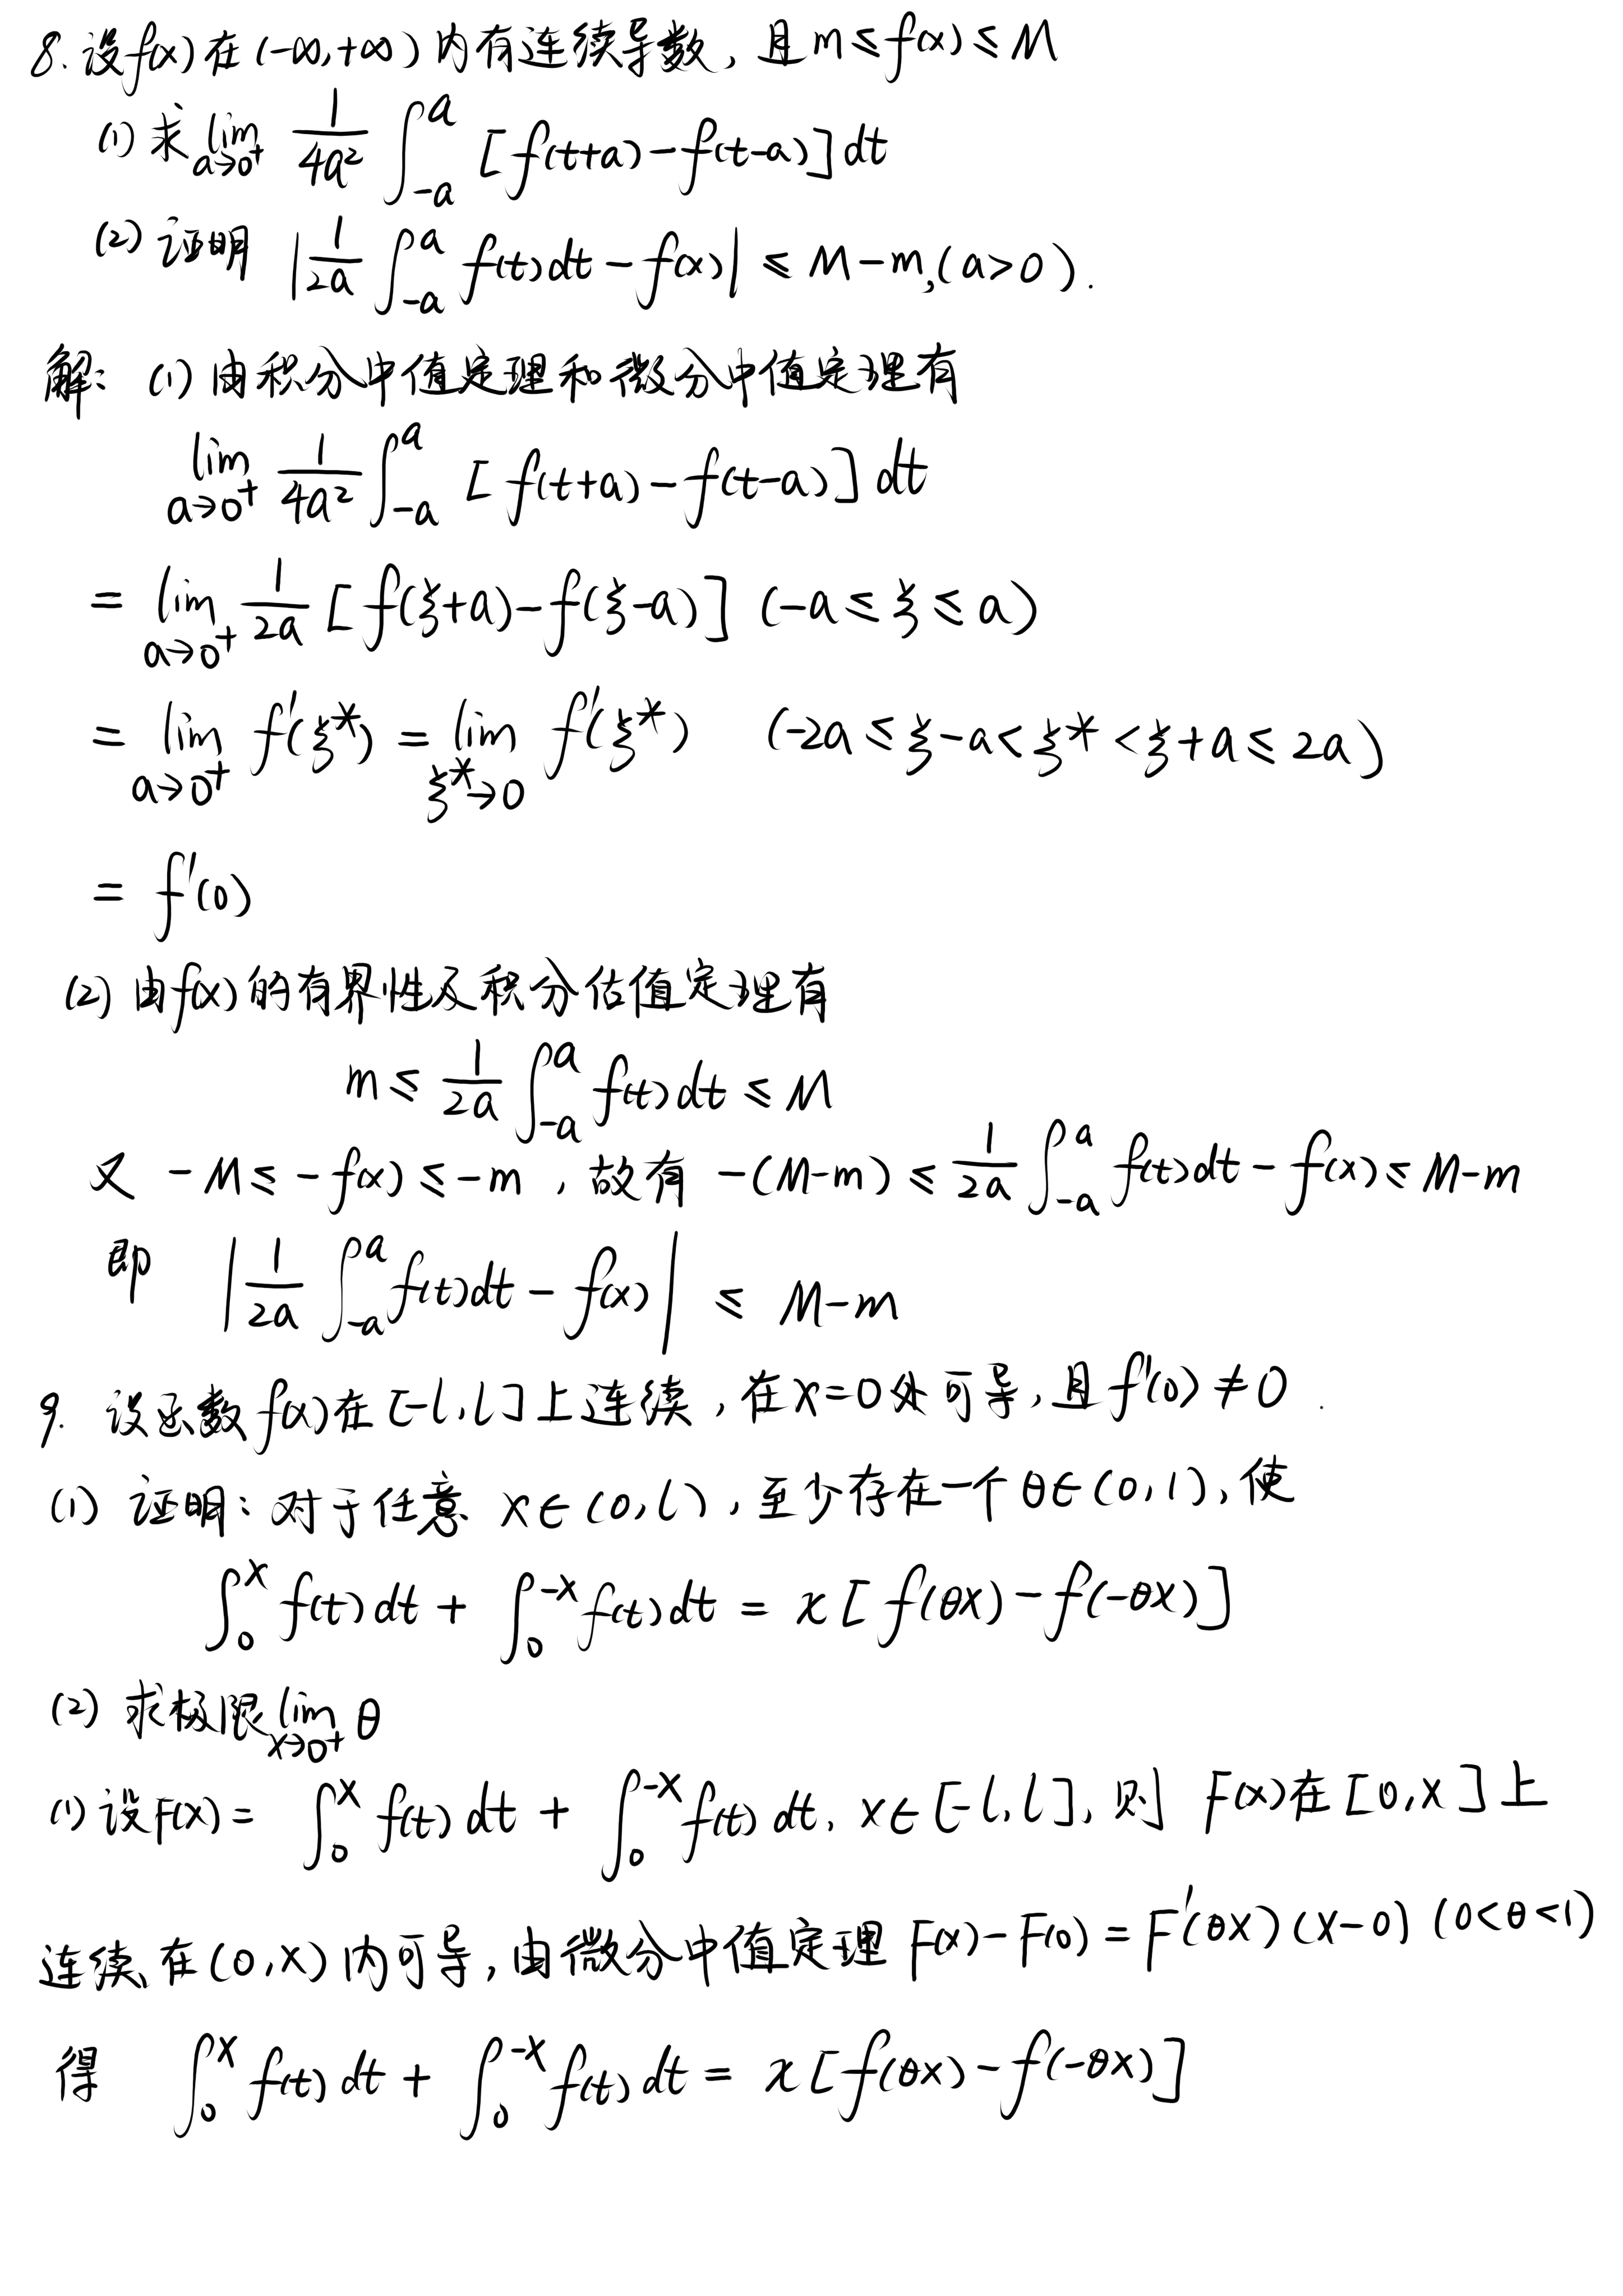 8. 设f(x)在(-∞,+∞)内有连续导数, 且m≤f(x)≤M
(1) 求 lim_{a→0⁺} 1/(4a²) ∫_{-a}^{a} [f(t+a)-f(t-a)]dt
(2) 证明 |1/(2a) ∫_{-a}^{a} f(t)dt - f(x)| ≤ M-m,(a>0).
解: (1) 由积分中值定理和微分中值定理有
lim_{a→0⁺} 1/(4a²) ∫_{-a}^{a} [f(t+a)-f(t-a)]dt
= lim_{a→0⁺} 1/(2a) [f(ξ+a)-f(ξ-a)] (-a≤ξ≤a)
= lim_{a→0⁺} f′(ξ*) = lim_{ξ*→0} f′(ξ*) (-2a≤ξ-a<ξ*<ξ+a≤2a)
= f′(0)
(2) 由f(x)的有界性及积分估值定理有
m≤ 1/(2a) ∫_{-a}^{a} f(t)dt ≤M
又 -M≤-f(x)≤-m, 故有 -(M-m)≤ 1/(2a) ∫_{-a}^{a} f(t)dt - f(x)≤M-m
即 |1/(2a) ∫_{-a}^{a} f(t)dt - f(x)| ≤ M-m
9. 设函数f(x)在[-l,l]上连续, 在x=0处可导, 且f′(0)≠0.
(1) 证明: 对于任意 x∈(0,l), 至少存在一个θ∈(0,1), 使
∫_0^x f(t)dt + ∫_0^{-x} f(t)dt = x[f(θx)-f(-θx)]
(2) 求极限 lim_{x→0⁺} θ
(1) 设F(x)= ∫_0^x f(t)dt + ∫_0^{-x} f(t)dt, x∈[-l,l], 则 F(x)在[0,x]上
连续、在(0,x)内可导, 由微分中值定理 F(x)-F(0)=F′(θx)(x-0) (0<θ<1)
得 ∫_0^x f(t)dt + ∫_0^{-x} f(t)dt = x[f(θx)-f(-θx)]